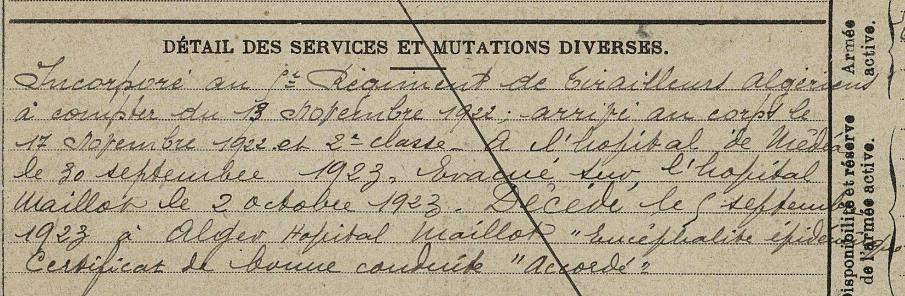 DÉTAIL DES SERVICES ET MUTATIONS DIVERSES.
Incorporé au 1er Régiment de Tirailleurs Algériens
à compter du 13 Novembre 1922; arrivé au corps le
17 Novembre 1922 et 2e classe. A l'hopital de Médéa
le 30 septembre 1923. Evacué sur l'hopital
Maillot le 2 octobre 1923. Décédé le septembre
1923 à Alger Hopital Maillot "Encéphalite épidémique
Certificat de bonne conduite "Accordé"
Armée active.
Disponibilité et réserve de l'armée active.